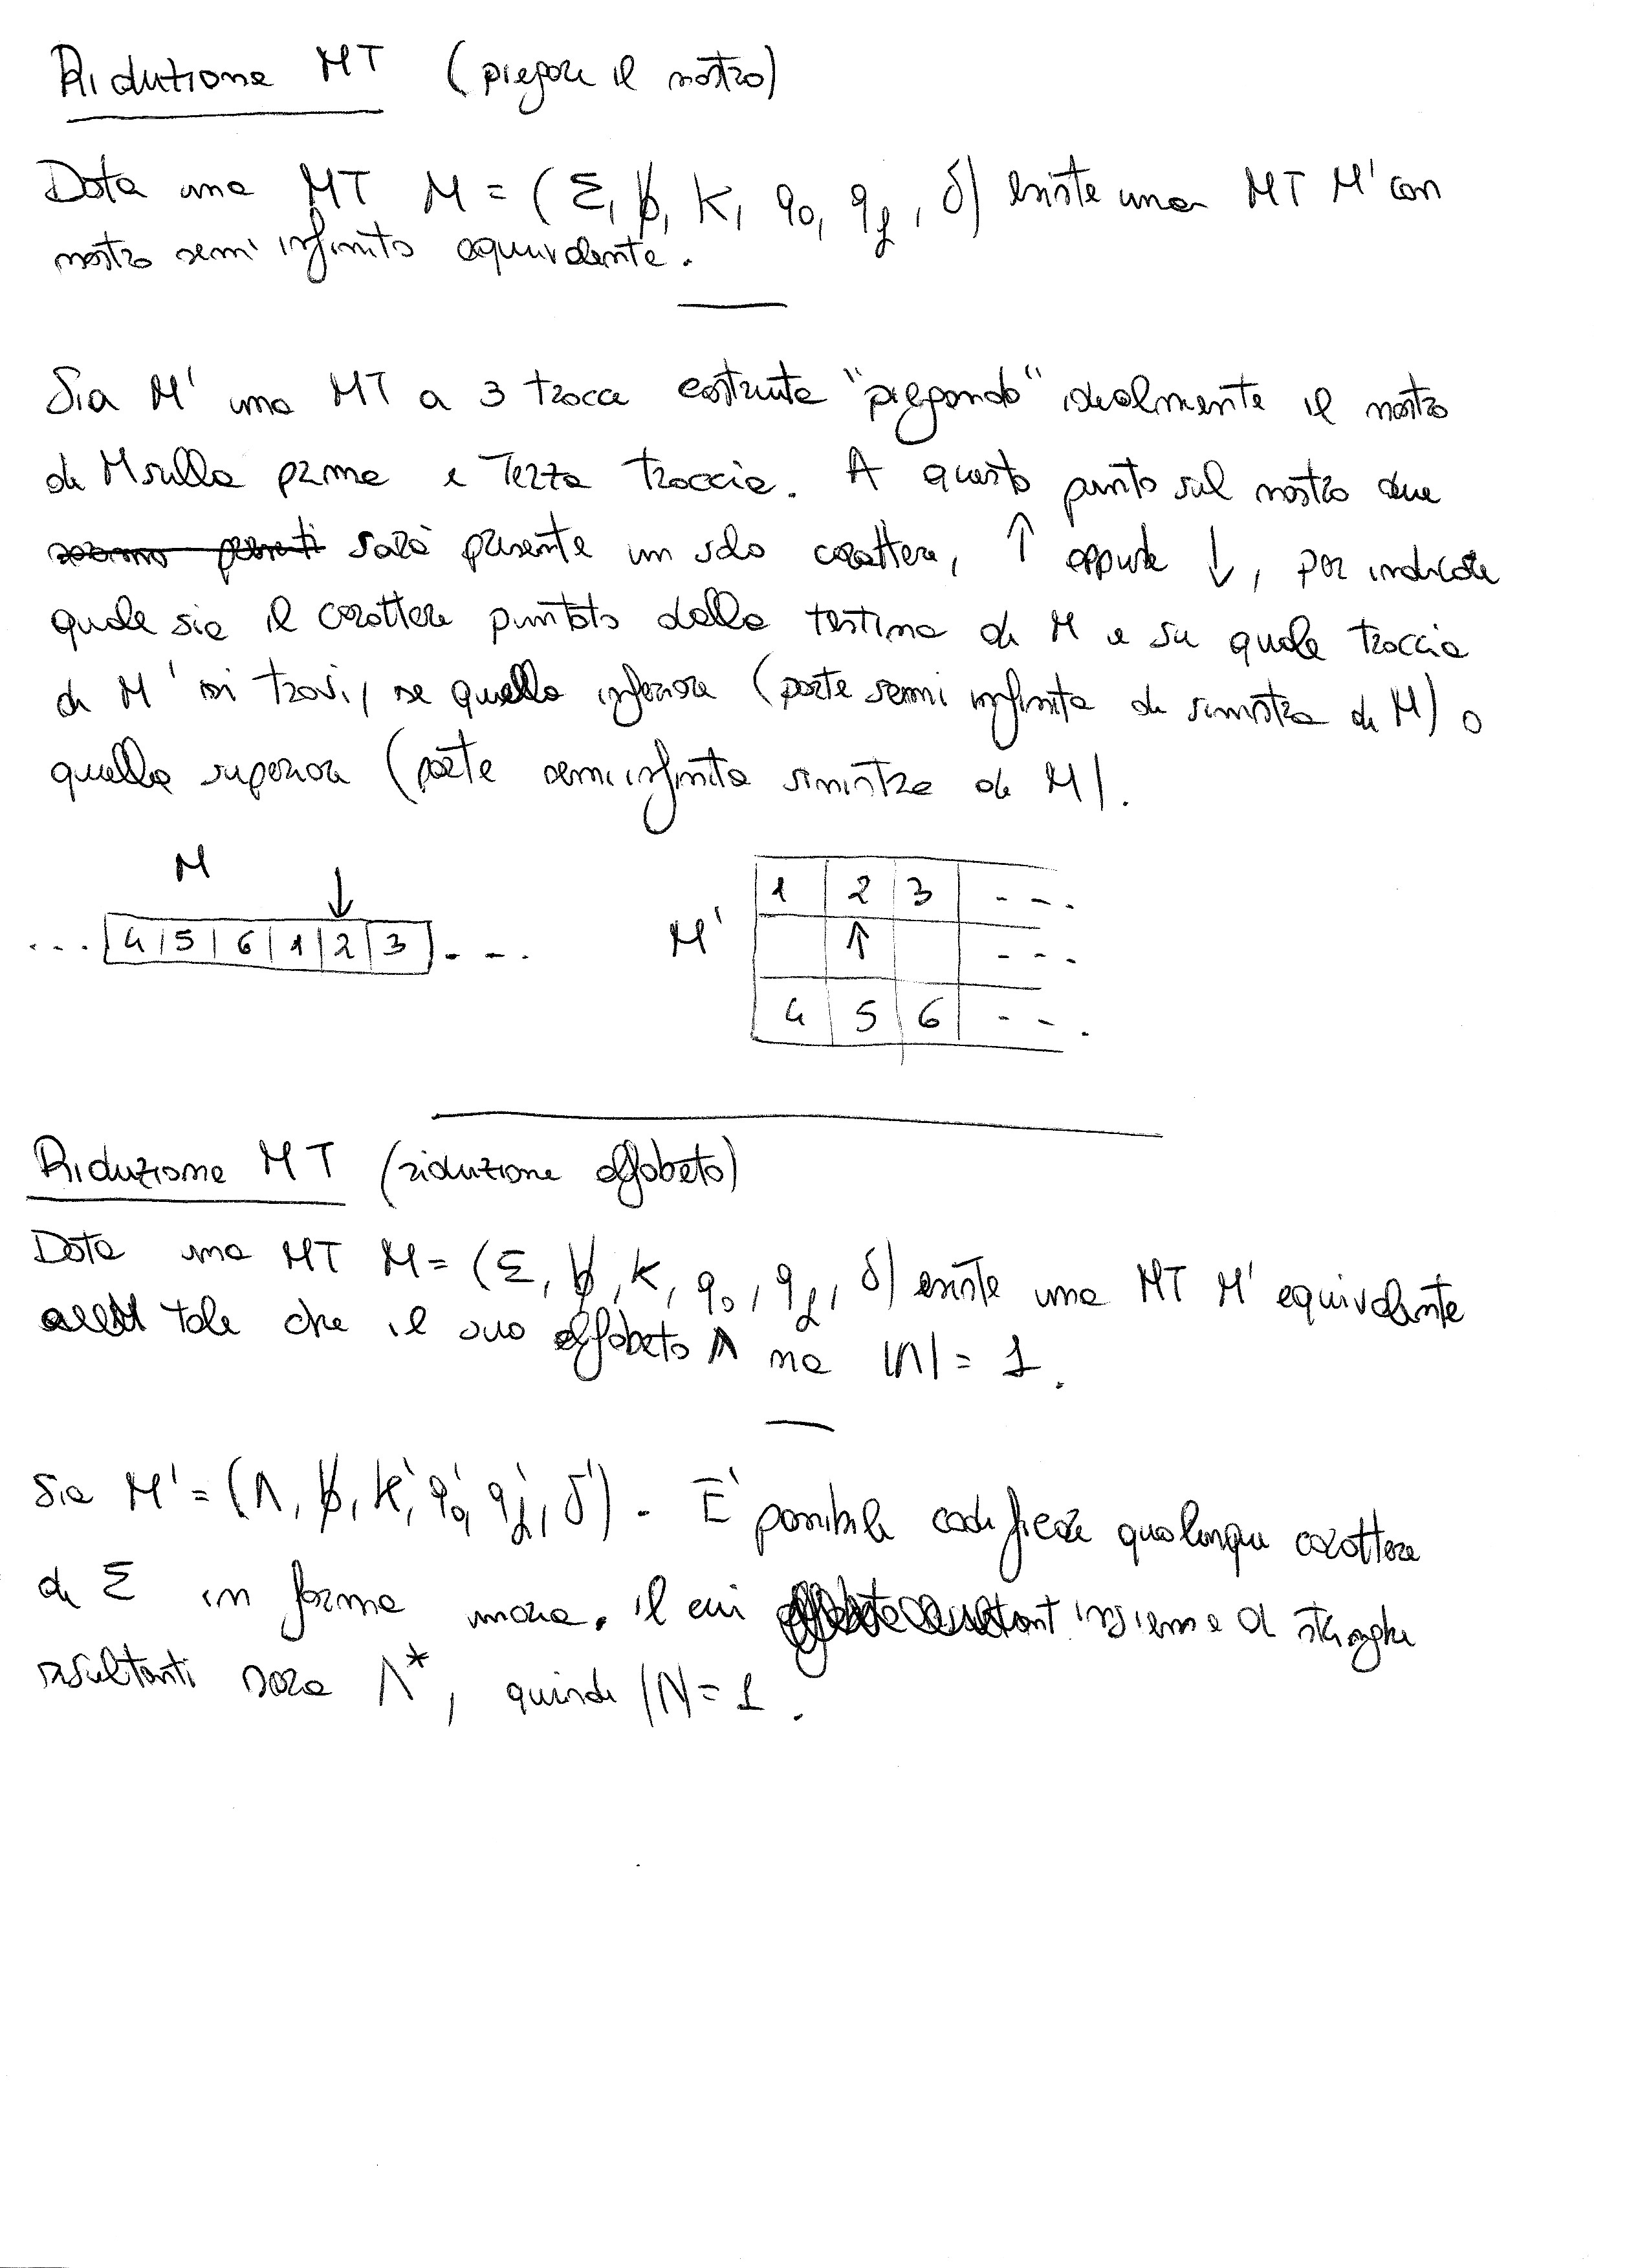 Riduzione MT (piegare il nastro)
Data una MT M = (Σ, ƀ, K, q₀, qf, δ) esiste una MT M' con
nastro semi infinito equivalente.
Sia M' una MT a 3 tracce costruita "piegando" idealmente il nastro
di M sulla prima e terza traccia. A questo punto sul nastro due
sarà presente un solo carattere, ↑ oppure ↓, per indicare
quale sia il carattere puntato dalla testina di M e su quale traccia
di M' si trovi, se quella inferiore (parte semi infinita di sinistra di M) o
quella superiore (parte semi infinita sinistra di M).
M ↓
... 4 | 5 | 6 | 1 | 2 | 3 ...
M'
1 2 3 ...
↑ ...
4 5 6 ...
Riduzione MT (riduzione alfabeto)
Data una MT M = (Σ, ƀ, K, q₀, qf, δ) esiste una MT M' equivalente
tale che il suo alfabeto Λ sia |Λ| = 1.
Sia M' = (Λ, ƀ, K', q₀', qf', δ'). E' possibile codificare qualunque carattere
di Σ in forma unaria, il cui insieme di stringhe
risultanti sarà Λ*, quindi |Λ| = 1.